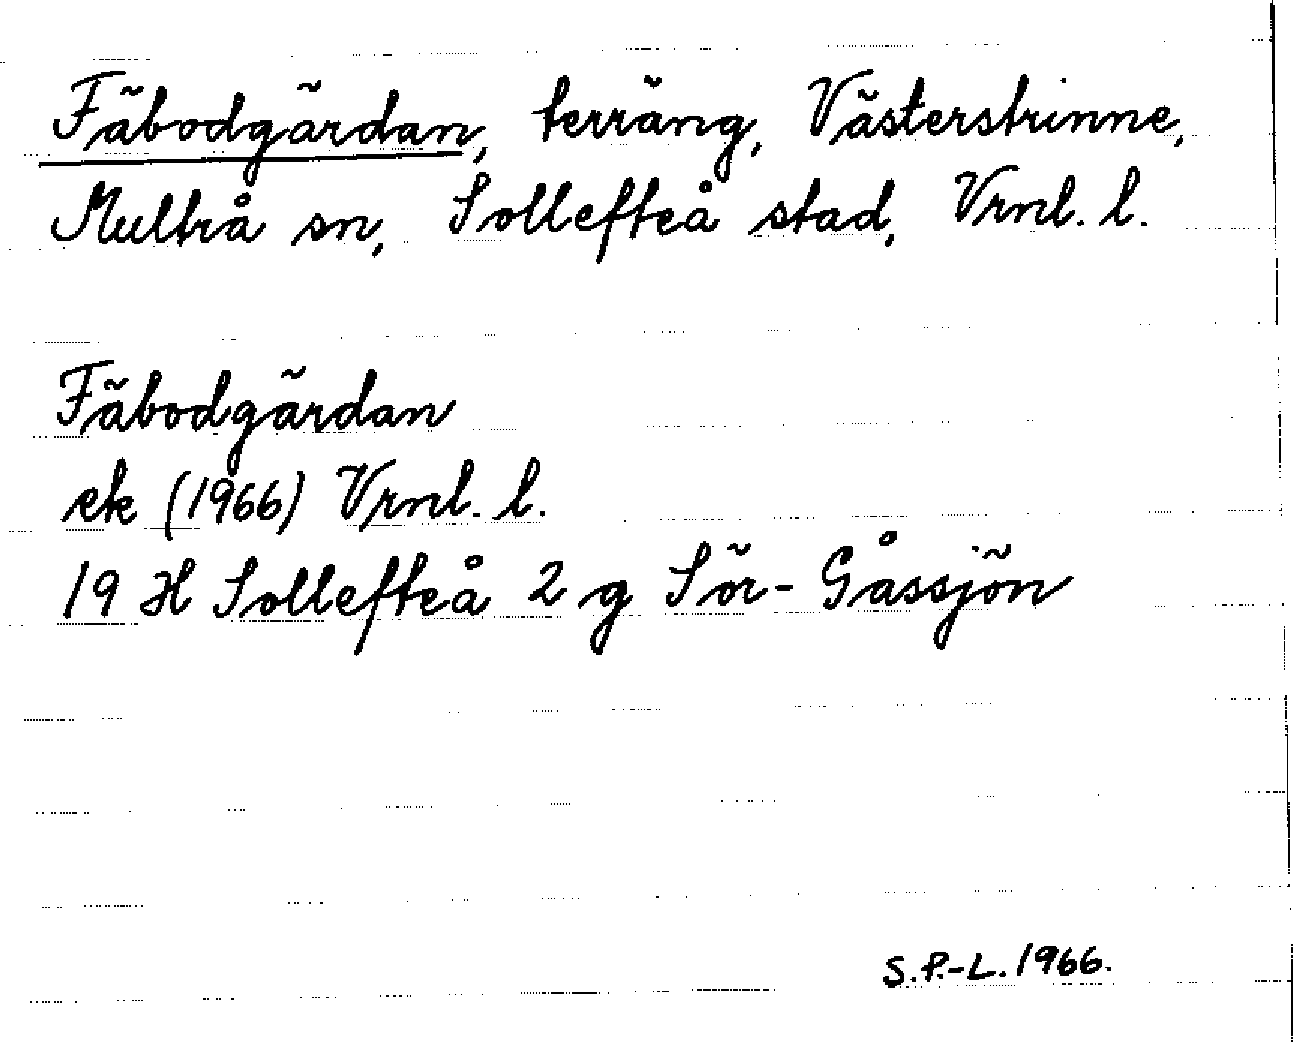 Fäbodgärdan, terräng, Västerstrinne,
Multrå sn, Sollefteå stad, Vrnl. l.
Fäbodgärdan
ek (1966) Vrnl. l.
19 H Sollefteå 2 g Sör-Gåssjön
S.P.-L. 1966.